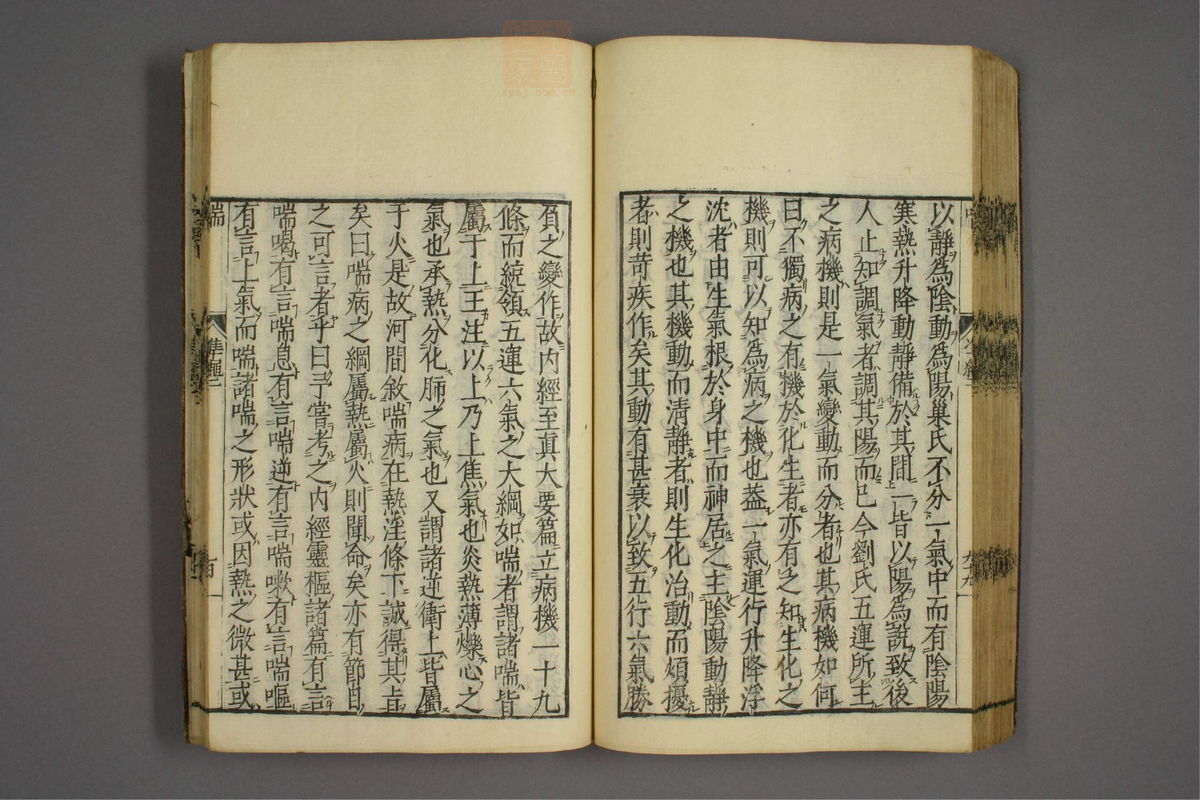 以靜為陰動為陽巢氏不分一氣中而有陰陽
寒熱升降動靜備於其間一皆以陽為說致後
人止知調氣者調其陽而已今劉氏五運所主
之病機則是一氣變動而分者也其病機如何
曰不獨病之有機於化生者亦有之知生化之
機則可以知為病之機也蓋一氣運行升降浮
沈者由生氣根於身中而神居之主陰陽動靜
之機也其機動而清靜者則生化治動而煩擾
者則苛疾作矣其動有甚衰以致五行六氣勝
負之變作故內經至真大要篇立病機一十九
條而統領五運六氣之大綱如喘者謂諸喘皆
屬于上王注以上乃上焦氣也炎熱薄爍心之
氣也承熱分化肺之氣也又謂諸逆衝上皆屬
于火是故河間敘喘病在熱淫條下誠得其旨
矣曰喘病之綱屬熱屬火則聞命矣亦有節目
之可言者乎曰予嘗考之內經靈樞諸篇有言
喘喝有言喘息有言喘逆有言喘嗽有言喘嘔
有言上氣而喘諸喘之形狀或因熱之微甚或
喘
準繩二